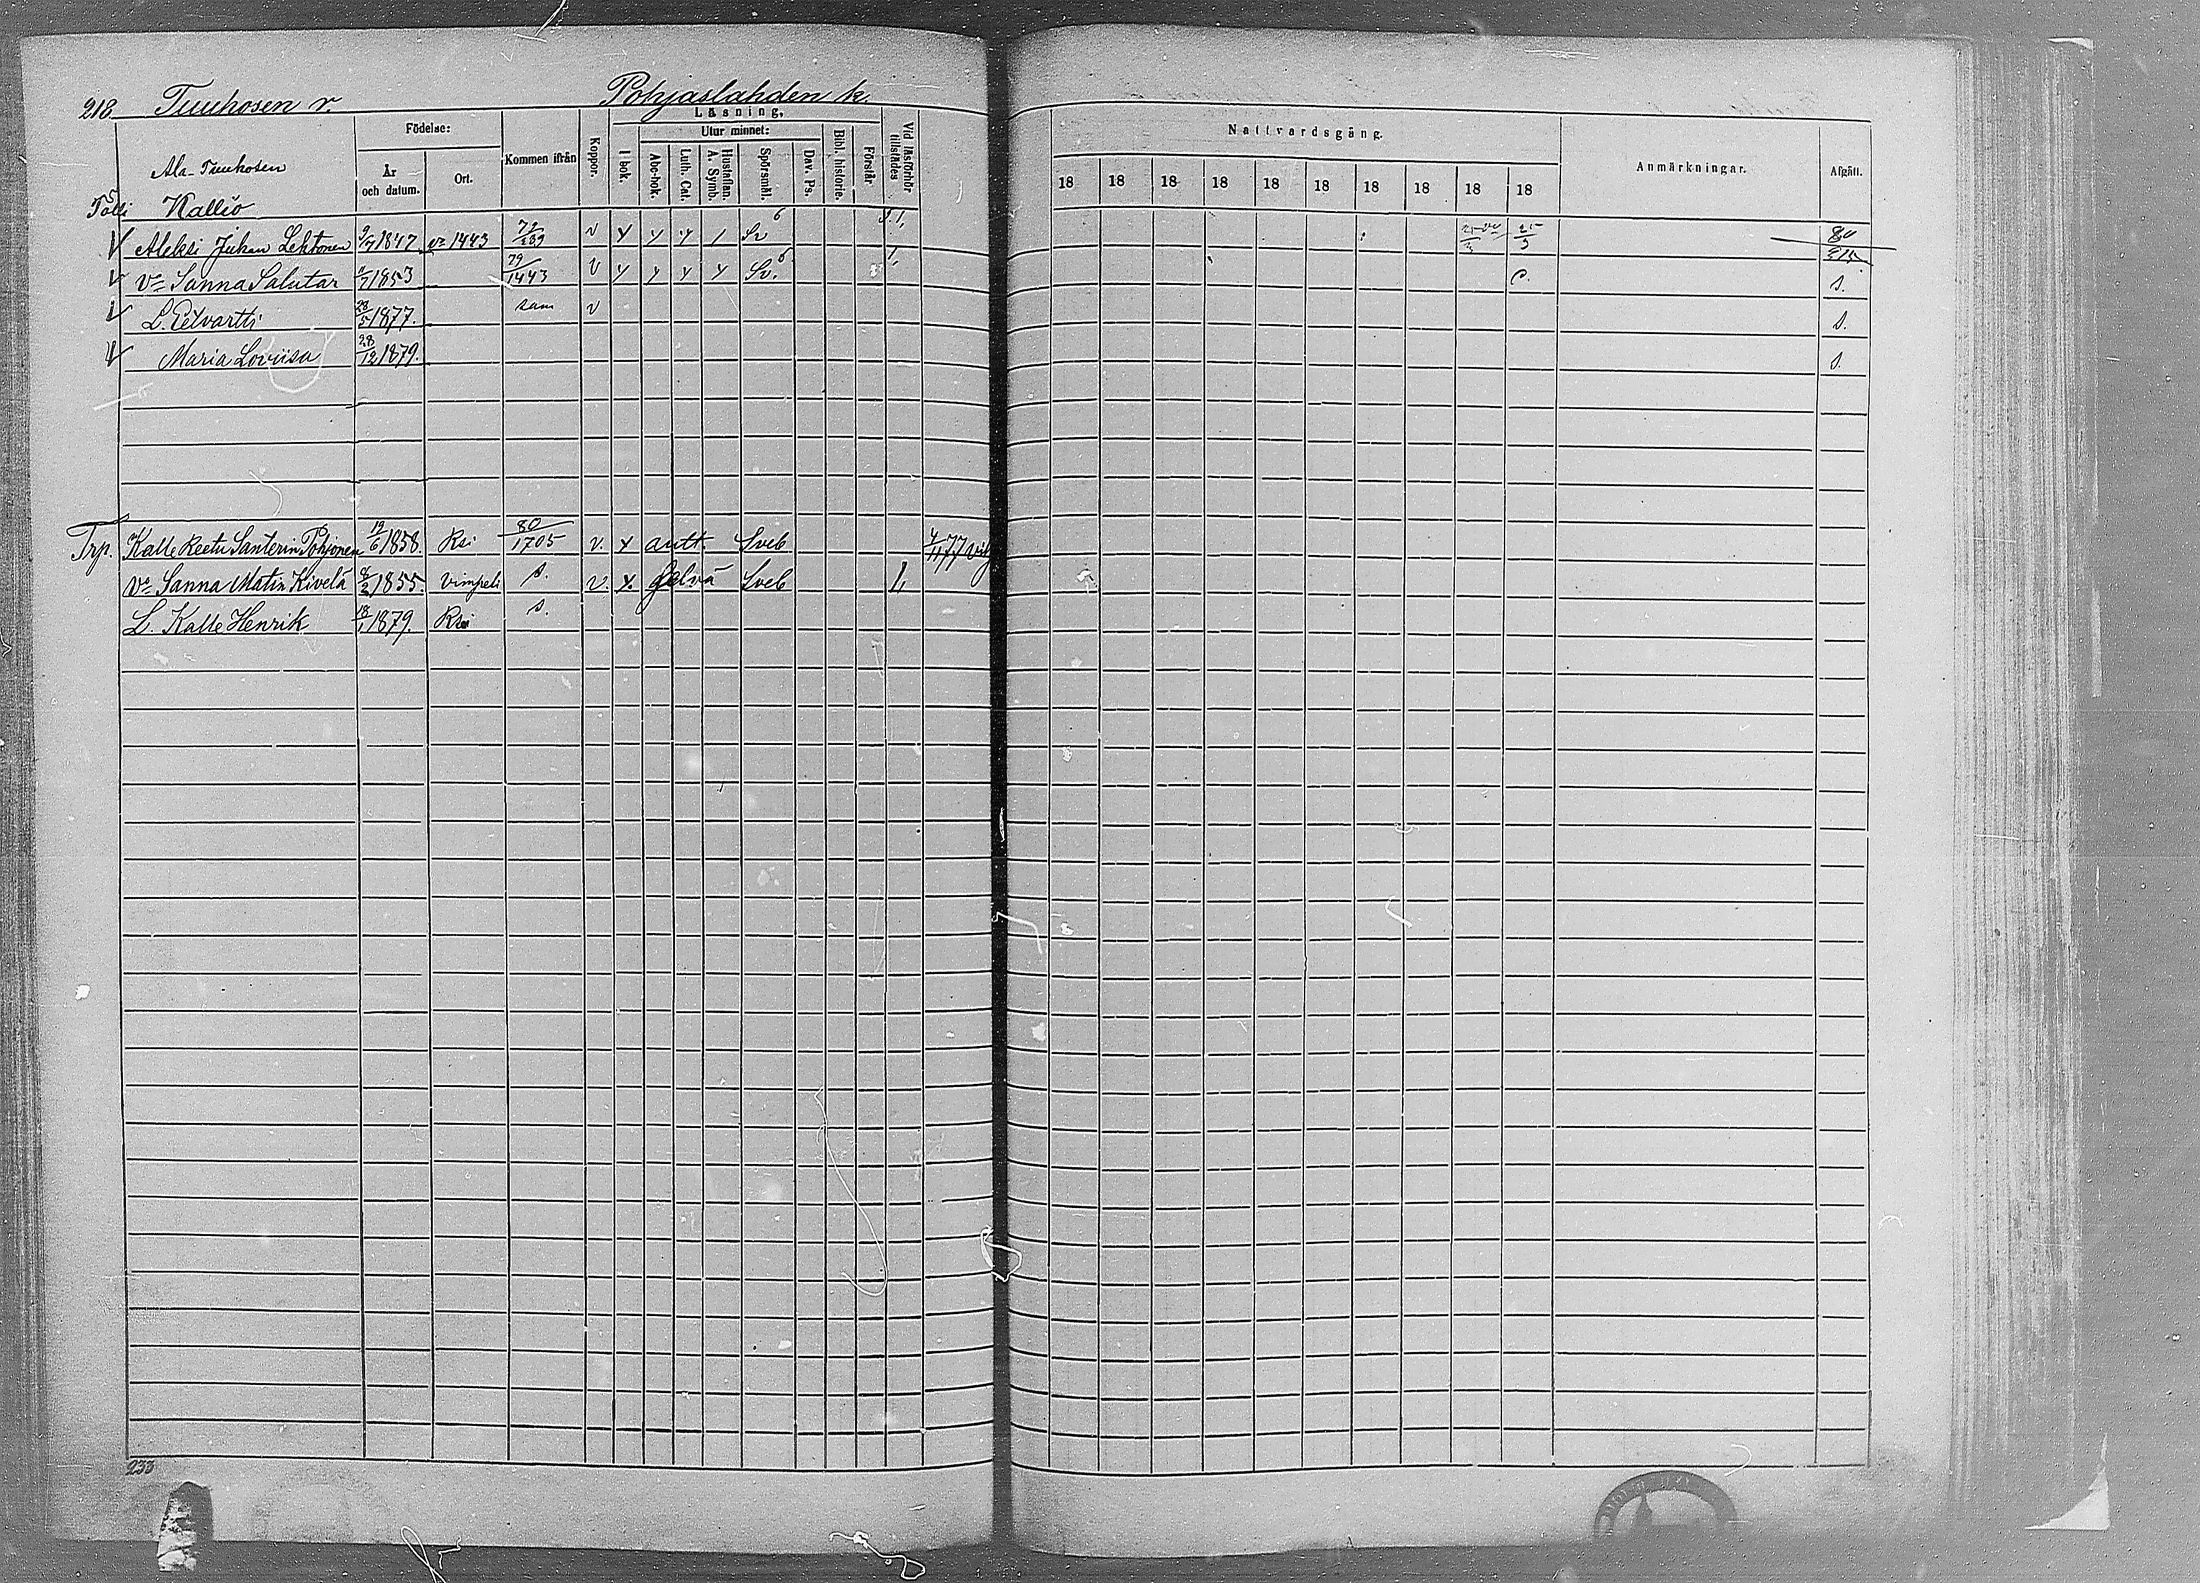 218 Tuuhosen r. Pohjaslahden k.
Födelse: Kommen ifrån Koppor. Läsning. Vid läsförhör tillstädes
År och datum. Ort. I bok. Utur minnet: Abc-bok. Luth. Cat. Hustaflan. A. Symb. Spörsmål. Dav. Ps. Bibl. historie. Förstår
Ala-Tuuhosen
Tölli Kallio
V Aleksi Juhan Lehtonen 9/7 1847 v= 1443 79/289 v y y y / Sv 6
V V= Sanna Salutar 1853 79/1443 v y y y y Sv. 6
V L. Eetvartti 28/5 1877. sam v
V Maria Loviisa 28/12 1879.
Trp. Kalle Reetu Santerin Pohjonen 19/6 1858. Ksi 80/1705 v. x autt. Sveb 4/11 77
V= Sanna Matin Kivelä 8/2 1855. Vimpeli s. v. x. selvä Sveb
L. Kalle Henrik 18/1 1879. Ksi s.
233
Nattvardsgång. Anmärkningar. Afgått.
18 18 18 18 18 18 18 18 18 18
25/3 80
215.
s.
s.
s.